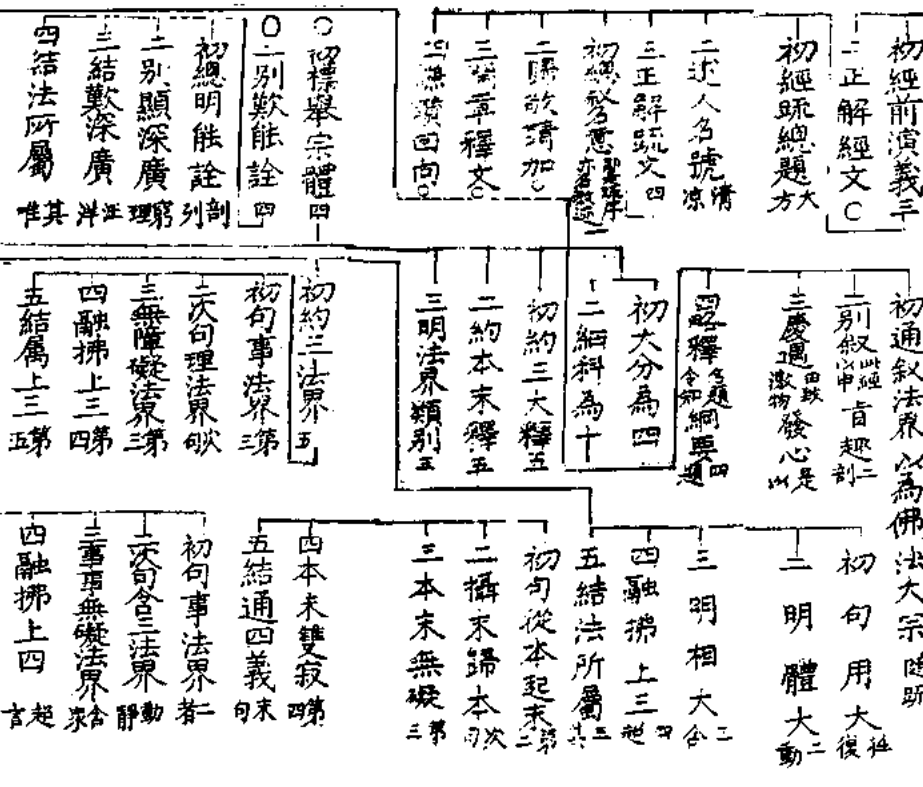 初經前演義三
二正解經文○
初經疏總題大方
二述人名號清涼
三正解疏文四
初總敘名意
二歸敬請加○
三開章釋文○
四謙讚回向○
○初標舉宗體四
○二別歎能詮四
初總明能詮剖列
二別顯深廣窮理
三結歎深廣汪洋
四結法所屬其唯
初通敘法界以為佛法大宗隨疏
二別敘此經以申旨趣二剖
三慶遇由致激物發心是以
四略釋名題令知綱要四題
初大分為四
二細科為十
初約三大釋五
二約本末釋五
三明法界類別五
初約三法界五
初句事法界第三
二次句理法界次句
三無障礙法界第三
四融拂上三第四
五結屬上三第五
初句用大往復
二明體大動二
三明相大含二
四融拂上三超四
五結法所屬其五
初句從本起末第二
二攝末歸本次句
三本末無礙第三
四本末雙寂第四
五結通四義末句
初句事法界二者
二次句含三法界動靜
三事事無礙法界含眾
四融拂上四超言